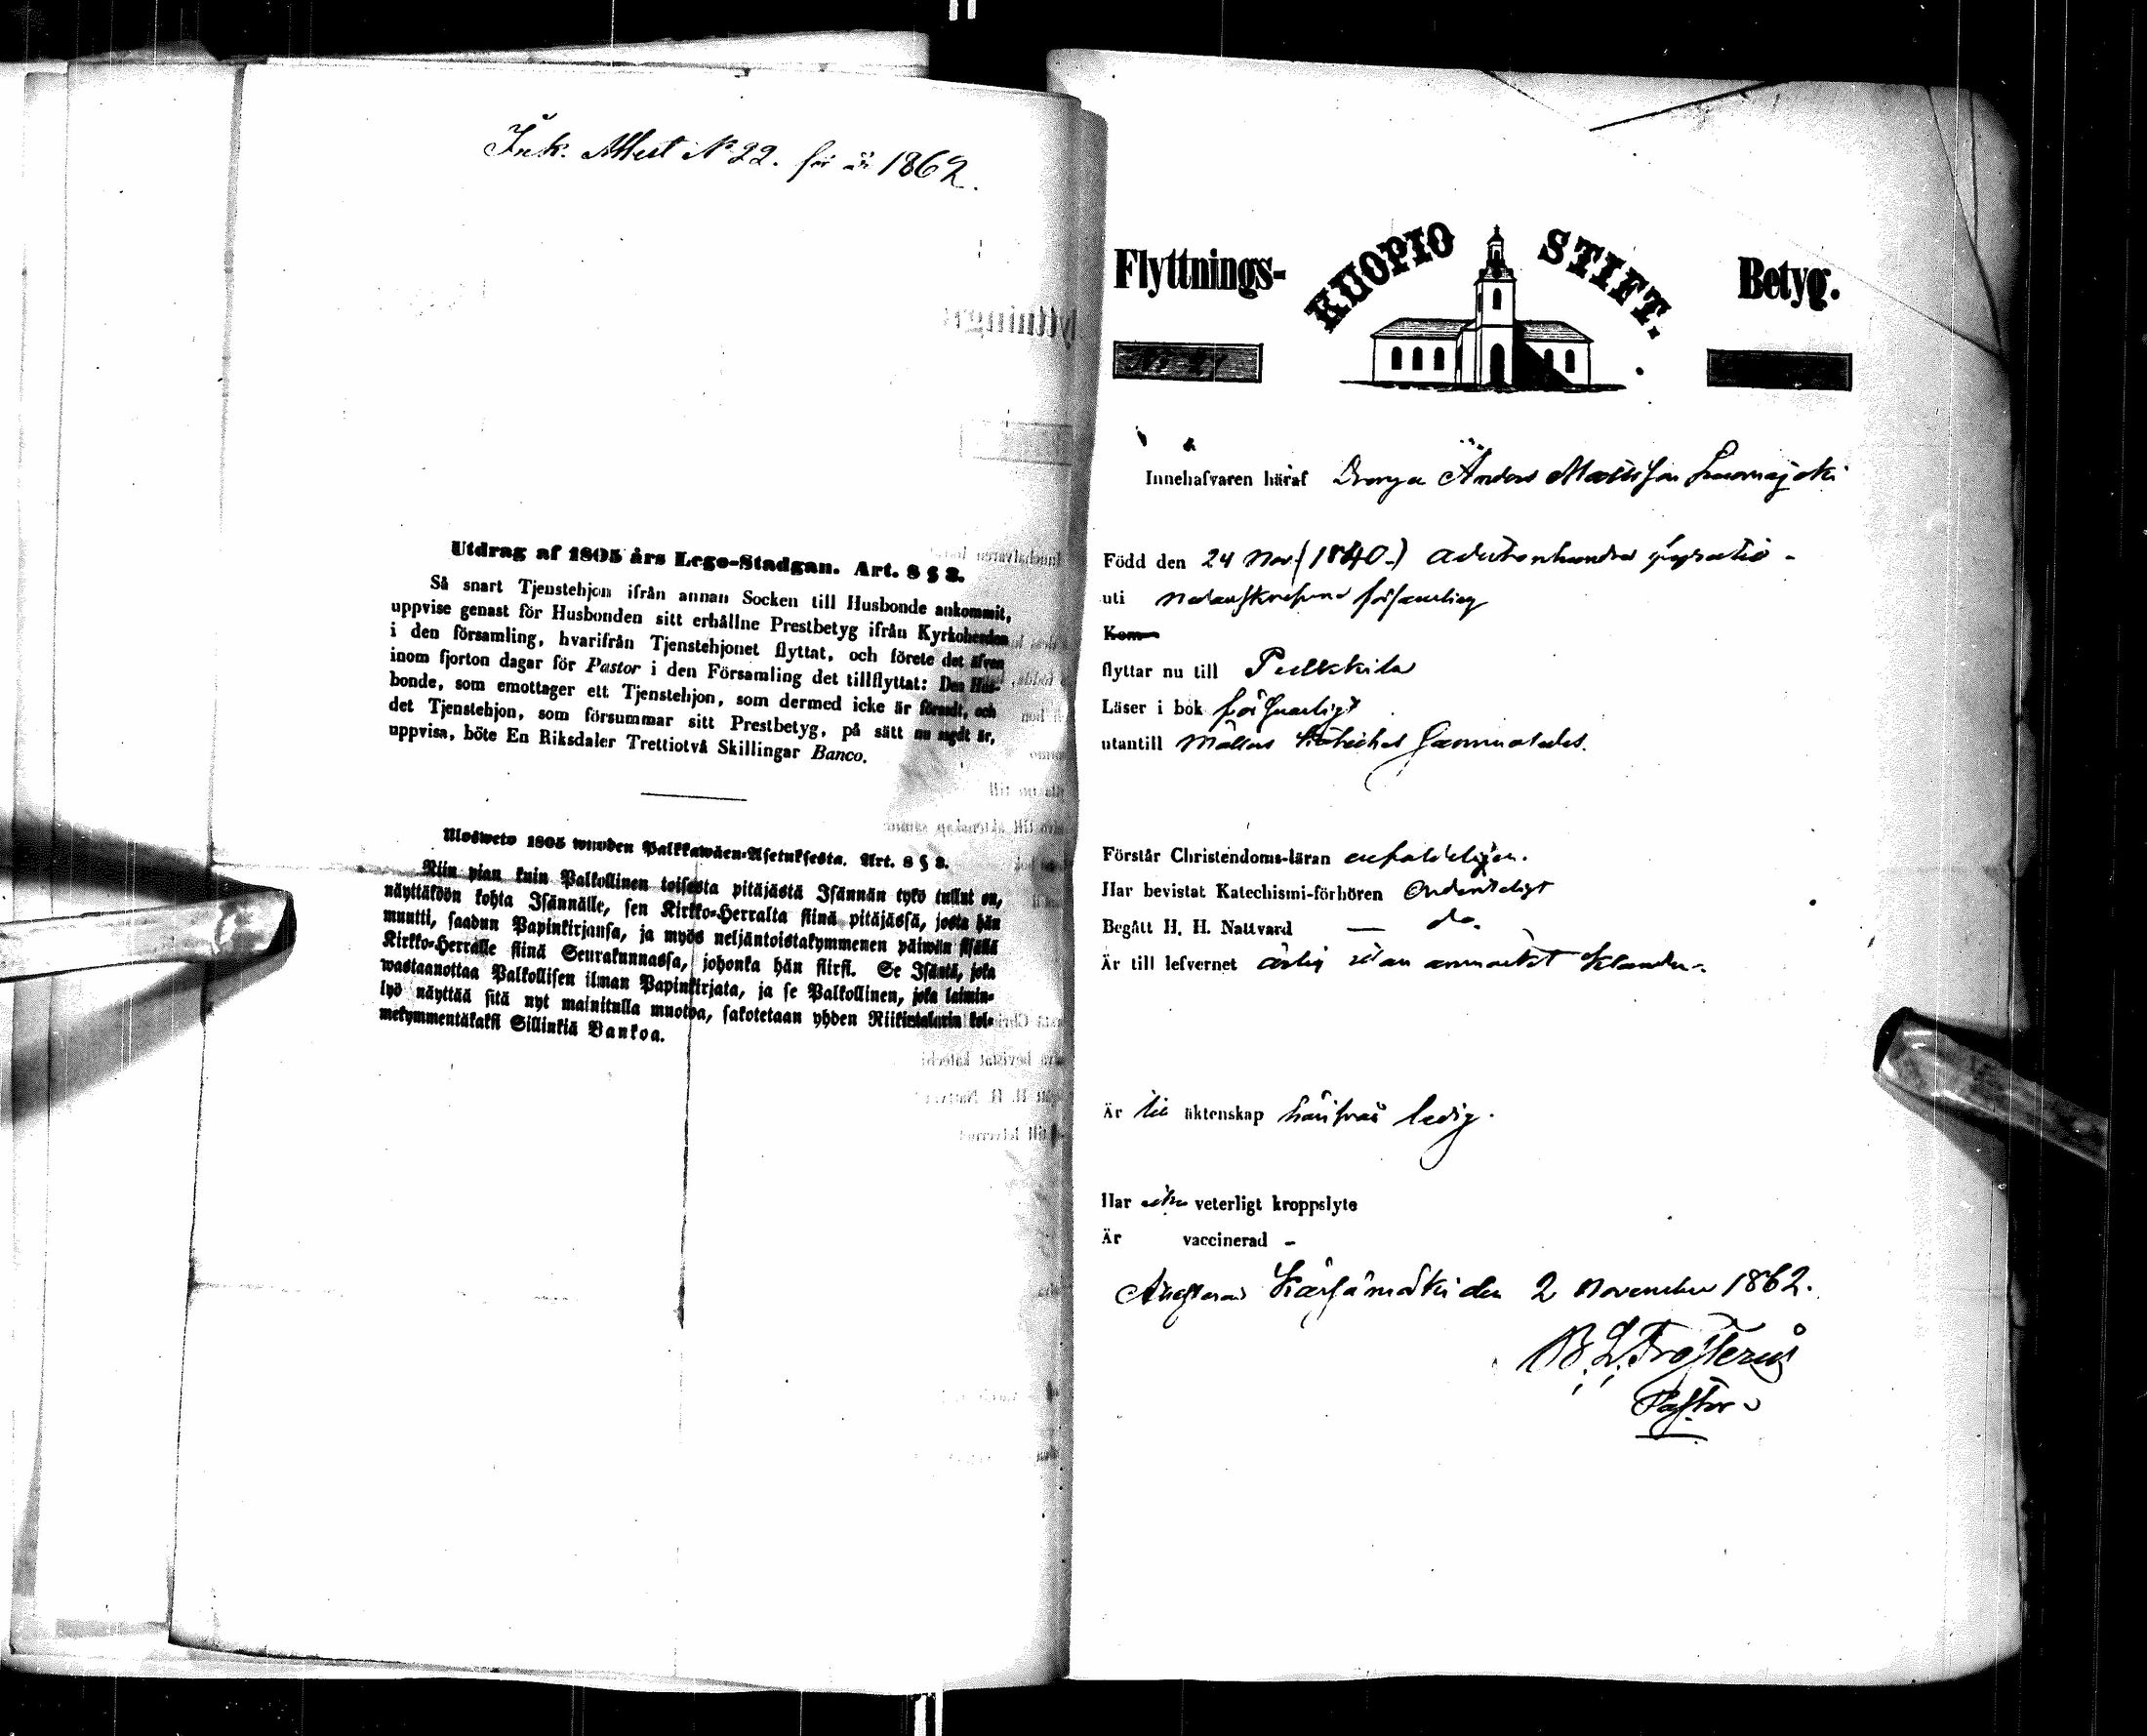 Ink. Attest N 22. för år 1862.
Utdrag af 1805 års Lego-Stadgan. Art. 8 § 3.
Så snart Tjenstehjon ifrån annan Socken till Husbonde ankommit,
uppvise genast för Husbonden sitt erhållne Prestbetyg ifrån Kyrkoherden
i den församling, hvarifrån Tjenstehjonet flyttat, och förete det äfven
inom fjorton dagar för Pastor i den Församling det tillflyttat: Den Hus-
bonde, som emottager ett Tjenstehjon, som dermed icke är försedt, och
det Tjenstehjon, som försummar sitt Prestbetyg, på sätt nu sagdt är,
uppvisa, böte En Riksdaler Trettiotvå Skillingar Banco.
Ulosweto 1805 wuoden Palkkawäen-Asetuksesta. Art. 8 § 3.
Niin pian kuin Palkollinen toisesta pitäjästä Isännän tykö tullut on,
näyttäköön kohta Isännälle, sen Kirkko-Herralta siinä pitäjässä, josta hän
muutti, saadun Papinkirjansa, ja myös neljäntoistakymmenen päiwän sisällä
Kirkko-Herralle siinä Seurakunnassa, johonka hän siirsi. Se Isäntä, joka
wastaanottaa Palkollisen ilman Papinkirjata, ja se Palkollinen, joka laimin-
lyö näyttää sitä nyt mainitulla muotoa, sakotetaan yhden Riikintalarin kol-
mekymmentäkaksi Sillinkiä Bankoa.
Flyttnings- KUOPIO STIFT. Betyg.
Innehafvaren häraf Drengen Anders Mattsson
Född den 24 Nov. (1840.) adertonhundra fyratio
uti nedanskrefne församling
Kom
flyttar nu till Pulkkila
Läser i bok försvarligt
utantill Möllers Cateches sammaledes.
Förstår Christendoms-läran enfaldeligen.
Har bevistat Katechismi-förhören Ordenteligt
Begått H. H. Nattvard — do.
Är till lefvernet ärlig utan anmärkt klander.
Är till äktenskap härifrån ledig.
Har icke veterligt kroppslyte
Är vaccinerad -
Attesterar Kärsämäki den 2 November 1862.
B. L. Frosterus
Pastor